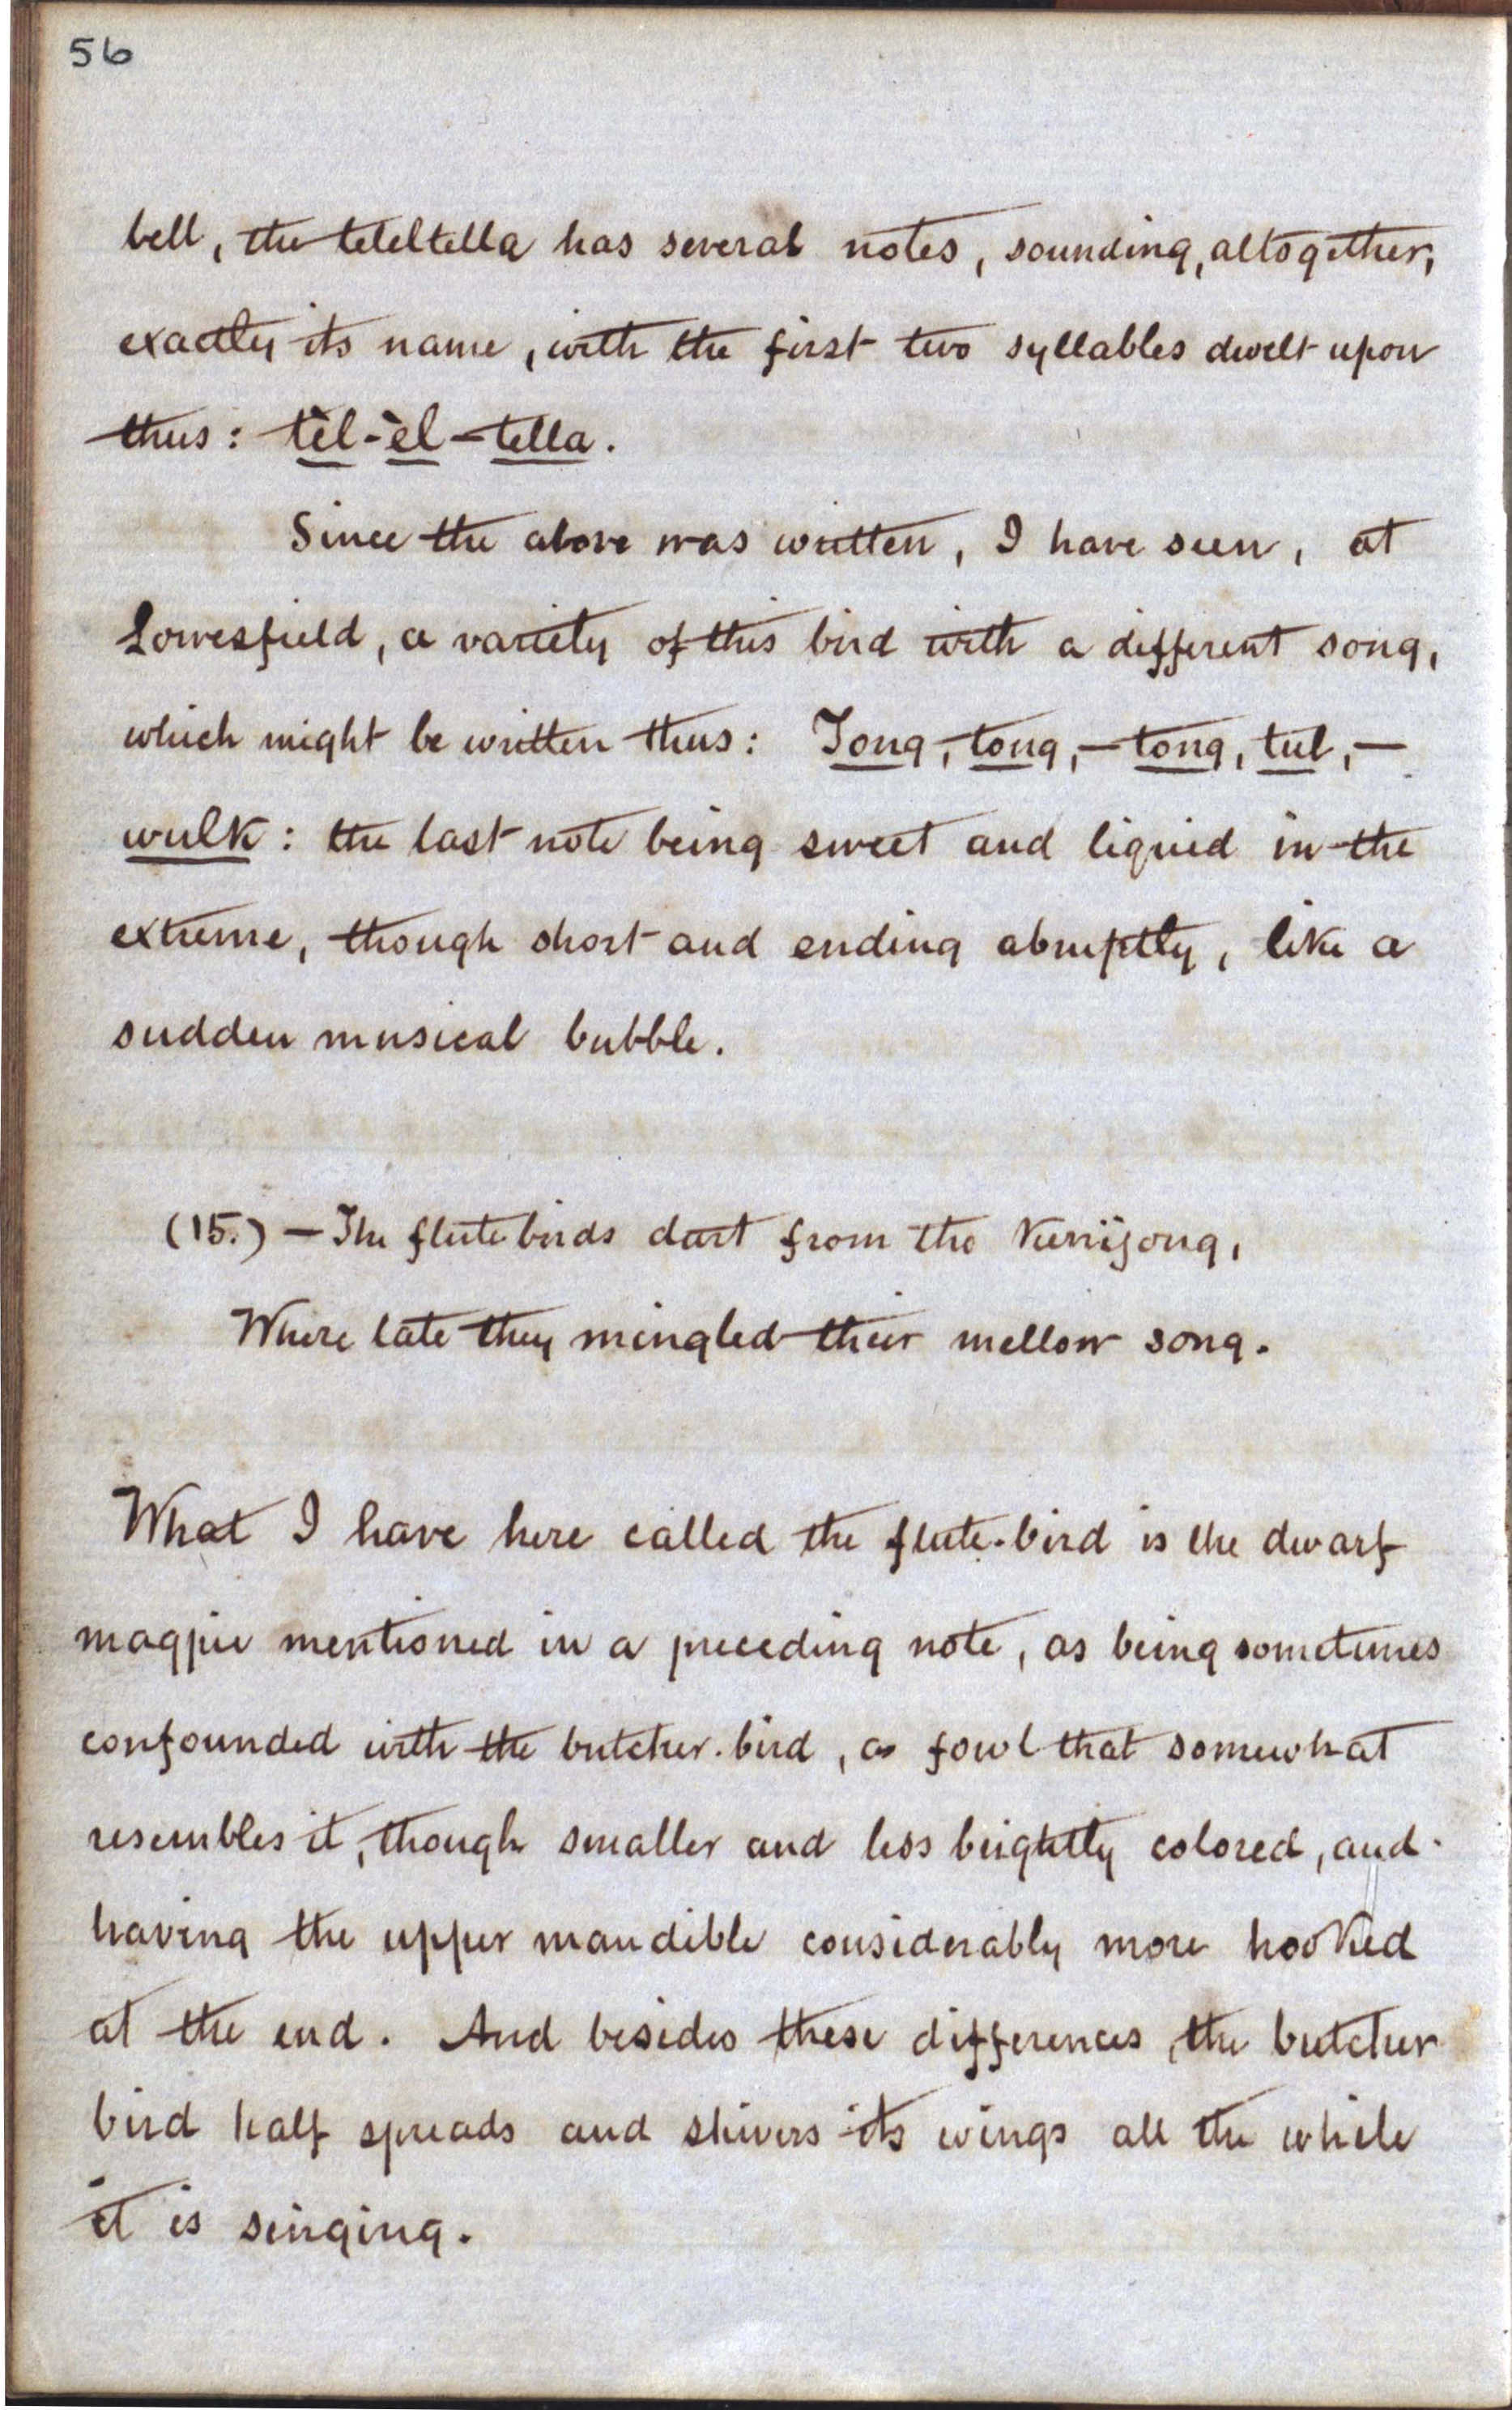 56
bell, the teleltella has several notes, sounding, altogether,
exactly its name, with the first two syllables dwelt upon
thus: tèl-èl-tella.
Since the above was written, I have seen, at
Lowesfield, a variety of this bird with a different song,
which might be written thus: Tong, tong,—tong, tul,—
wulk: the last note being sweet and liquid in the
extreme, though short and ending abruptly, like a
sudden musical bubble.
(15.)—The flute birds dart from the Kurrijong,
Where late they mingled their mellow song.
What I have here called the flute-bird is the dwarf
magpie mentioned in a preceding note, as being sometimes
confounded with the butcher-bird, a fowl that somewhat
resembles it, though smaller and less brightly colored, and
having the upper mandible considerably more hooked
at the end. And besides these differences, the butcher
bird half spreads and shivers its wings all the while
it is singing.